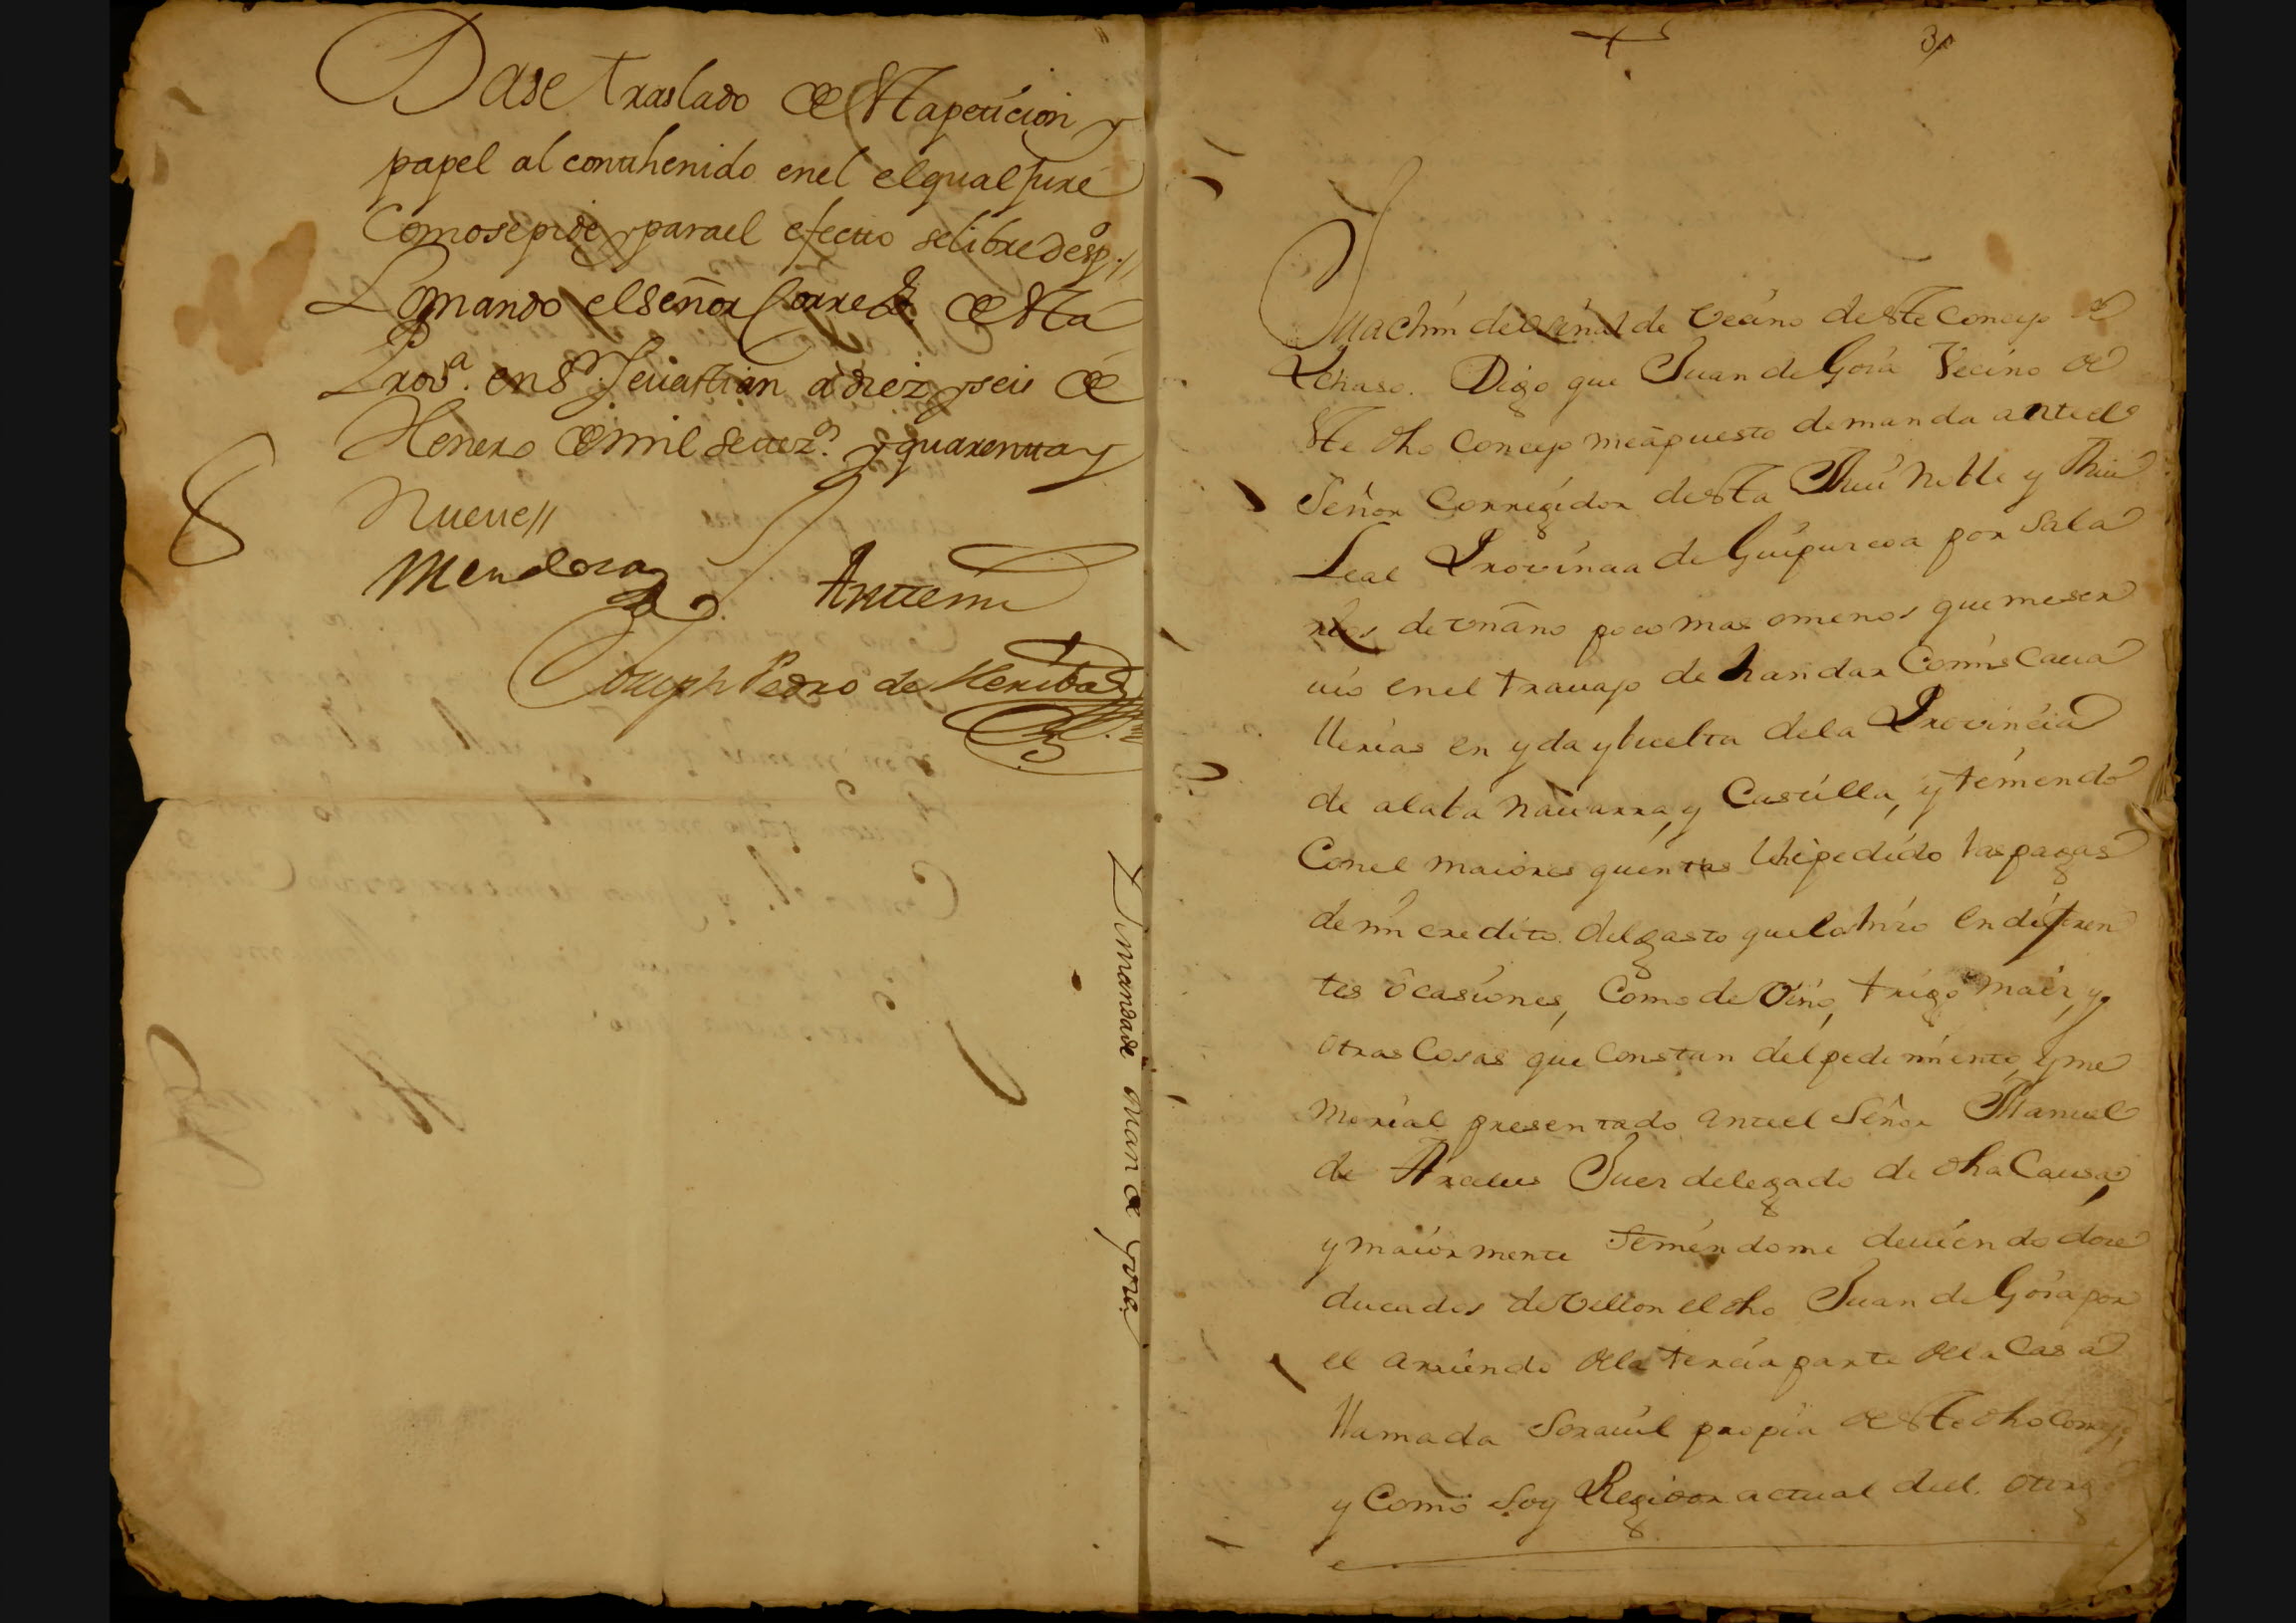 Dase traslado de esta peticion y
papel al conthenido en el el qual jure
Como se pide, y para el efecto se libre desp.º //
Lo mando el señor Correxr. de esta
Prov.ª en S.n Sevastian a diez y seis de
Henero de mil settez.s y quarentta y
Nueve //
Mendoza
Antte mi
Joseph Pedro de
Demanda de Juan de Goia
3
Machin de vecino de este Concejo de
Digo que Juan de Goia Vecino de
este dho Concejo me a puesto demanda ante el
Señor Corregidor de esta Muí Noble y Muí
Leal Provincia de Guipuzcoa por sala
rios de un año poco mas o menos que me ser
uio en el trauajo de handar Con mis Caua
llerias en yda y buelta de la Provincia
de alaba nauarra, y Castilla, y teniendo
Con el maiores quentas le he pedido las pagas
de mi credito del gasto que lo hizo en diferen
tes ocasiones, Como de Vino, trigo maiz, y
otras Cosas que Constan del pedimiento, y me
morial presentado ante el Señor Manuel
de Juez delegado de dha Causa,
y maiormente teniendome deuiendo doze
ducados de vellon el dho Juan de Goia por
el arriendo de la tercia parte de la Casa
llamada Sorauil propia de este dho Concejo,
y Como Soy Regidor actual del. otorg